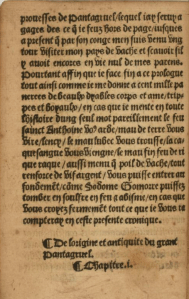 prouesses de Pantagruel/lequel iay seruy a
gages des ce q̃ ie fuz hors de page/iusques
a present q̃ par son conge men suis venu vng
tour visiter mon pays de vache et scauoir sil
y auoit encores en vie nul de mes parens.
Pourtant affin que ie face fin a ce prologue
tout ainsi comme ie me donne a cent mille pa
nerees de beaulx dyables corps et ame/trip-
pes et boyaulx/en cas que ie mente en toute
lhistoire dung seul mot pareillement le feu
sainct Anthoine vo⁹ arde/mau de terre vous
vire/lency/le mau lubec vous trousse/la ca
quesangue vous viengne/le mau fin feu de ri
cque racque/aussi menu q̃ poil de vache/tout
enforce de vif argent/vous puisse entrer au
fondement/cõme Sodome Gomorre puissez
tomber en soulfre en feu ⁊ abisme/en cas que
vous croyez fermement tout ce que ie vous ra
compteray en ceste presente cronique.
¶De lorigine et antiquite du grant
Pantagruel.
¶Chapitre.i.